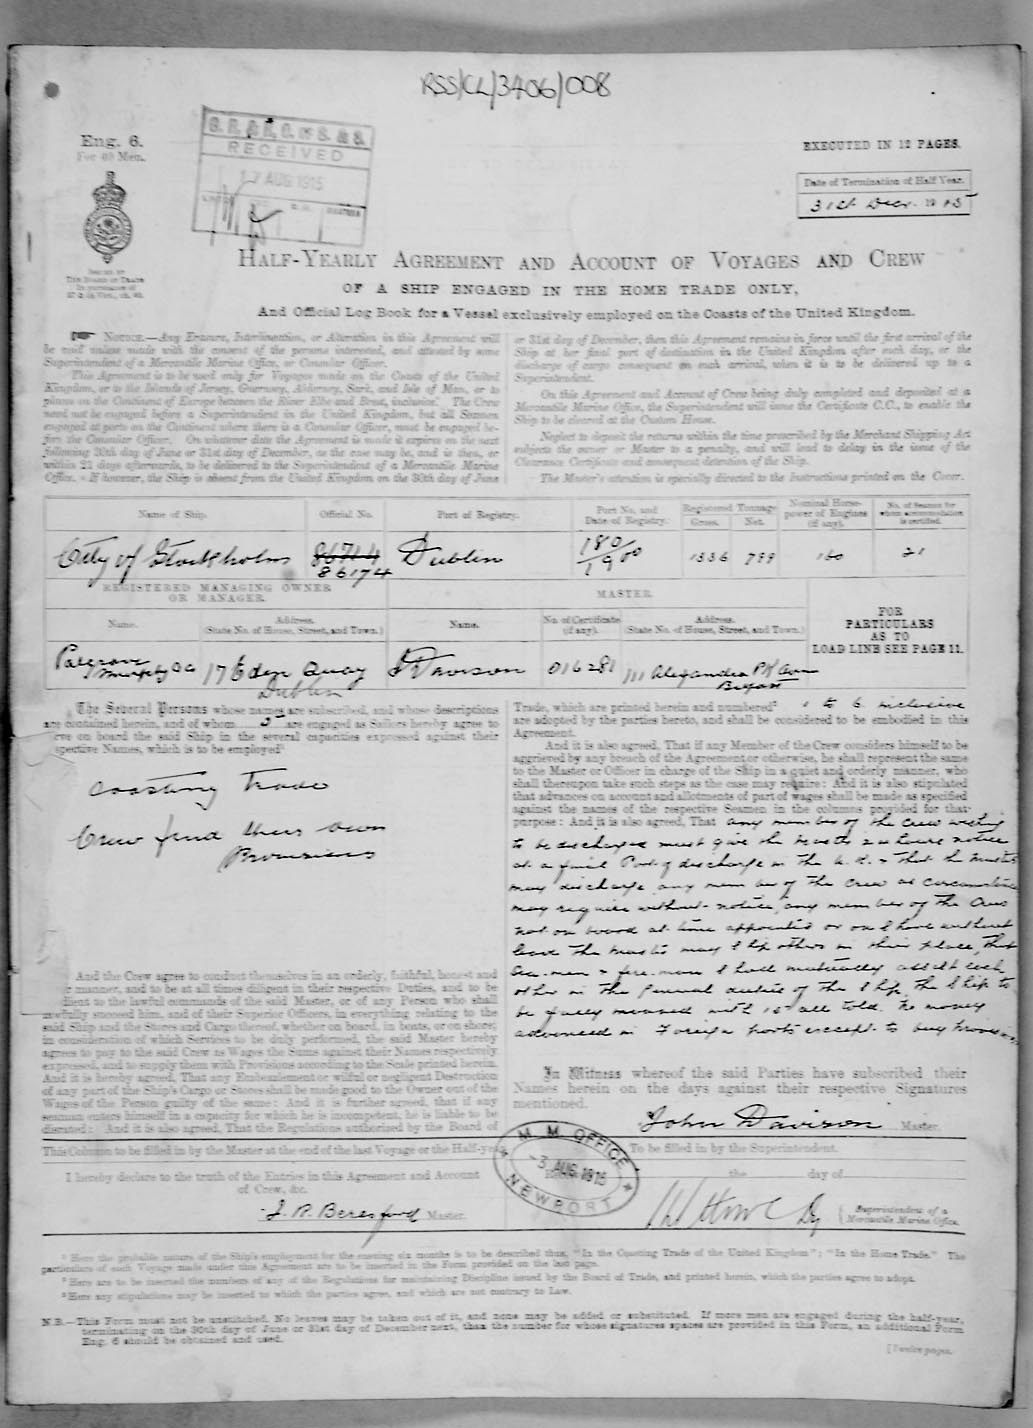 RSS/CL/3406/008
Eng. 6.
For 40 Men.
RECEIVED
17 AUG 1915
EXECUTED IN 12 PAGES.
Date of Termination of Half Year.
31st Decr. 1915
Issued by
The Board of Trade
In pursuance of
57 & 58 Vict., ch. 60.
HALF-YEARLY AGREEMENT AND ACCOUNT OF VOYAGES AND CREW
OF A SHIP ENGAGED IN THE HOME TRADE ONLY,
And Official Log Book for a Vessel exclusively employed on the Coasts of the United Kingdom.
NOTICE.—Any Erasure, Interlineation, or Alteration in this Agreement will
be void unless made with the consent of the persons interested, and attested by some
Superintendent of a Mercantile Marine Office, or Consular Officer.
This Agreement is to be used only for Voyages made on the Coasts of the United
Kingdom, or to the Islands of Jersey, Guernsey, Alderney, Sark, and Isle of Man, or to
places on the Continent of Europe between the River Elbe and Brest, inclusive. The Crew
need not be engaged before a Superintendent in the United Kingdom, but all Seamen
engaged at ports on the Continent where there is a Consular Officer, must be engaged be-
fore the Consular Officer. On whatever date the Agreement is made it expires on the next
following 30th day of June or 31st day of December, as the case may be, and is then, or
within 21 days afterwards, to be delivered to the Superintendent of a Mercantile Marine
Office. If however, the Ship is absent from the United Kingdom on the 30th day of June
or 31st day of December, then this Agreement remains in force until the first arrival of the
Ship at her final port of destination in the United Kingdom after such day, or the
discharge of cargo consequent on such arrival, when it is to be delivered up to a
Superintendent.
On this Agreement and Account of Crew being duly completed and deposited at a
Mercantile Marine Office, the Superintendent will issue the Certificate C.C., to enable the
Ship to be cleared at the Custom House.
Neglect to deposit the returns within the time prescribed by the Merchant Shipping Act
subjects the owner or Master to a penalty, and will lead to delay in the issue of the
Clearance Certificate and consequent detention of the Ship.
The Master's attention is specially directed to the Instructions printed on the Cover.
Name of Ship. Official No. Port of Registry. Port No. and Date of Registry. Registered Tonnage Gross. Net. Nominal Horse-power of Engines (if any). No. of Seamen for whom accommodation is certified.
City of Stockholm 86714 86174 Dublin 180/1900 1336 799 160 21
REGISTERED MANAGING OWNER OR MANAGER.
MASTER.
FOR
PARTICULARS
AS TO
LOAD LINE SEE PAGE 11.
Name. Address. (State No. of House, Street, and Town.) Name. No. of Certificate (if any). Address. (State No. of House, Street, and Town.)
Palgrave Murphy & Co 17 Eden Quay Dublin J Davison 016281 111 Alexandra Pk Aven Belfast
The Several Persons whose names are subscribed, and whose descriptions
are contained herein, and of whom 5 are engaged as Sailors hereby agree to
serve on board the said Ship in the several capacities expressed against their
respective Names, which is to be employed¹
Coasting Trade
Crew find their own
Provisions
And the Crew agree to conduct themselves in an orderly, faithful, honest and
manner, and to be at all times diligent in their respective Duties, and to be
dient to the lawful commands of the said Master, or of any Person who shall
lawfully succeed him, and of their Superior Officers, in everything relating to the
said Ship and the Stores and Cargo thereof, whether on board, in boats, or on shore;
in consideration of which Services to be duly performed, the said Master hereby
agrees to pay to the said Crew as Wages the Sums against their Names respectively
expressed, and to supply them with Provisions according to the Scale printed herein.
And it is hereby agreed, That any Embezzlement or wilful or negligent Destruction
of any part of the Ship's Cargo or Stores shall be made good to the Owner out of the
Wages of the Person guilty of the same: And it is further agreed, that if any
seaman enters himself in a capacity for which he is incompetent, he is liable to be
disrated: And it is also agreed, That the Regulations authorised by the Board of
Trade, which are printed herein and numbered² 1 to 6 inclusive
are adopted by the parties hereto, and shall be considered to be embodied in this
Agreement.
And it is also agreed, That if any Member of the Crew considers himself to be
aggrieved by any breach of the Agreement or otherwise, he shall represent the same
to the Master or Officer in charge of the Ship in a quiet and orderly manner, who
shall thereupon take such steps as the case may require: And it is also stipulated
that advances on account and allotments of part of wages shall be made as specified
against the names of the respective Seamen in the columns provided for that
purpose: And it is also agreed, That any member of the Crew wishing
to be discharged must give the Master 24 hours notice
at a final Port of discharge in the U.K. & that the Master
may discharge any member of the crew as circumstances
may require without notice, any member of the Crew
not on board at time appointed or on shore without
leave the Master may ship others in their place, that
Sea-men & fire-men shall mutually assist each
other in the general duties of the Ship, the Ship to
be fully manned with 15 all told. No money
advanced in Foreign ports except to buy Provisions
In Witness whereof the said Parties have subscribed their
Names herein on the days against their respective Signatures
mentioned.
John Davison Master.
This Column to be filled in by the Master at the end of the last Voyage or the Half-year.
I hereby declare to the truth of the Entries in this Agreement and Account
of Crew, &c.
J. R. Beresford Master.
M M OFFICE
-3 AUG 1915
NEWPORT
To be filled in by the Superintendent.
the day of
Superintendent of a
Mercantile Marine Office.
¹ Here the probable nature of the Ship's employment for the ensuing six months is to be described thus, "In the Coasting Trade of the United Kingdom"; "In the Home Trade." The
particulars of each Voyage made under this Agreement are to be inserted in the Form provided on the last page.
² Here are to be inserted the numbers of any of the Regulations for maintaining Discipline issued by the Board of Trade, and printed herein, which the parties agree to adopt.
³ Here any stipulations may be inserted to which the parties agree, and which are not contrary to Law.
N.B.—This Form must not be unstitched. No leaves may be taken out of it, and none may be added or substituted. If more men are engaged during the half-year,
terminating on the 30th day of June or 31st day of December next, than the number for whose signatures spaces are provided in this Form, an additional Form
Eng. 6 should be obtained and used.
[Twelve pages.